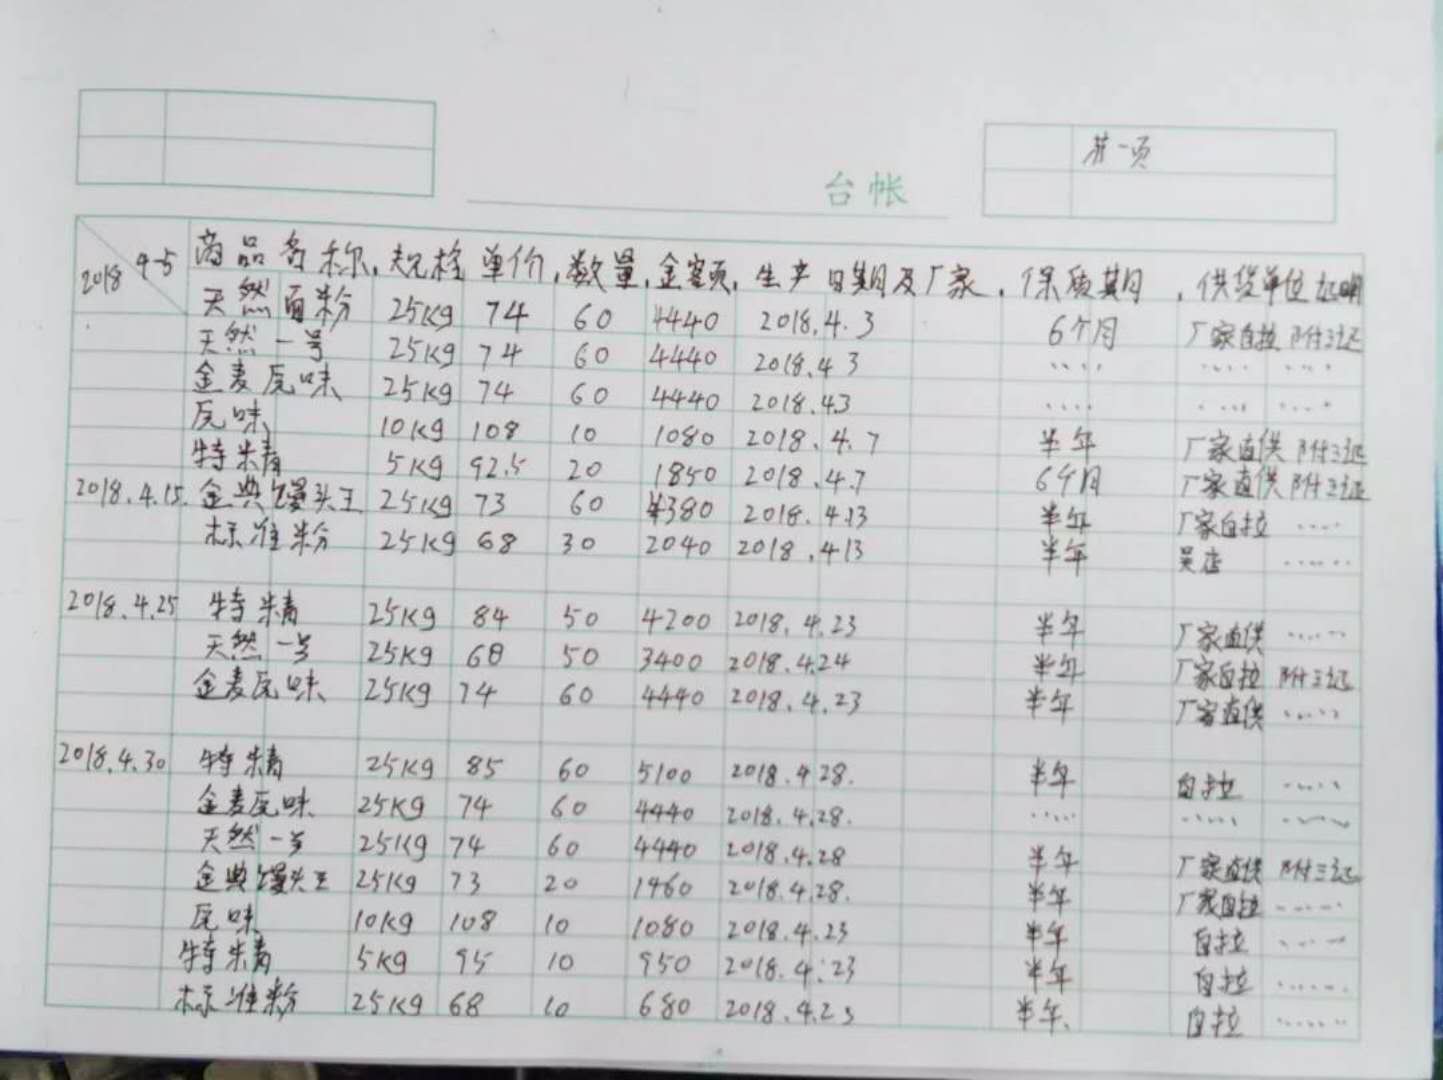 第一页
台帐
2018 4-5 商品名称, 规格 单价, 数量, 金额, 生产日期及厂家, 保质期, 供货单位 证明
天然面粉 25Kg 74 60 4440 2018.4.3 6个月 厂家自拉 附三证
天然一号 25Kg 74 60 4440 2018.4 3 ···· ···· ····
金麦原味 25Kg 74 60 4440 2018.43 ···· ···· ····
原味 10Kg 108 10 1080 2018.4.7 半年 厂家直供 附三证
特精 5Kg 92.5 20 1850 2018.4.7 6个月 厂家直供 附三证
2018.4.15. 金典馒头王 25Kg 73 60 4380 2018.4.13 半年 厂家自拉 ····
标准粉 25Kg 68 30 2040 2018.413 半年 吴店 ······
2018.4.25 特精 25Kg 84 50 4200 2018.4.23 半年 厂家直供 ······
天然一号 25Kg 68 50 3400 2018.4.24 半年 厂家自拉 附三证
金麦原味 25Kg 74 60 4440 2018.4.23 半年 厂家直供 ·····
2018.4.30 特精 25Kg 85 60 5100 2018.4 28. 半年 自拉 ·····
金麦原味 25Kg 74 60 4440 2018.4.28. ····· ····· ·····
天然一号 25Kg 74 60 4440 2018.4.28 半年 厂家直供 附三证
金典馒头王 25Kg 73 20 1460 2018.4.28. 半年 厂家自拉 ·····
原味 10Kg 108 10 1080 2018.4.23 半年 自拉 ····
特精 5Kg 95 10 950 2018.4.23 半年 自拉 ······
标准粉 25Kg 68 10 680 2018.4.23 半年. 自拉 ······